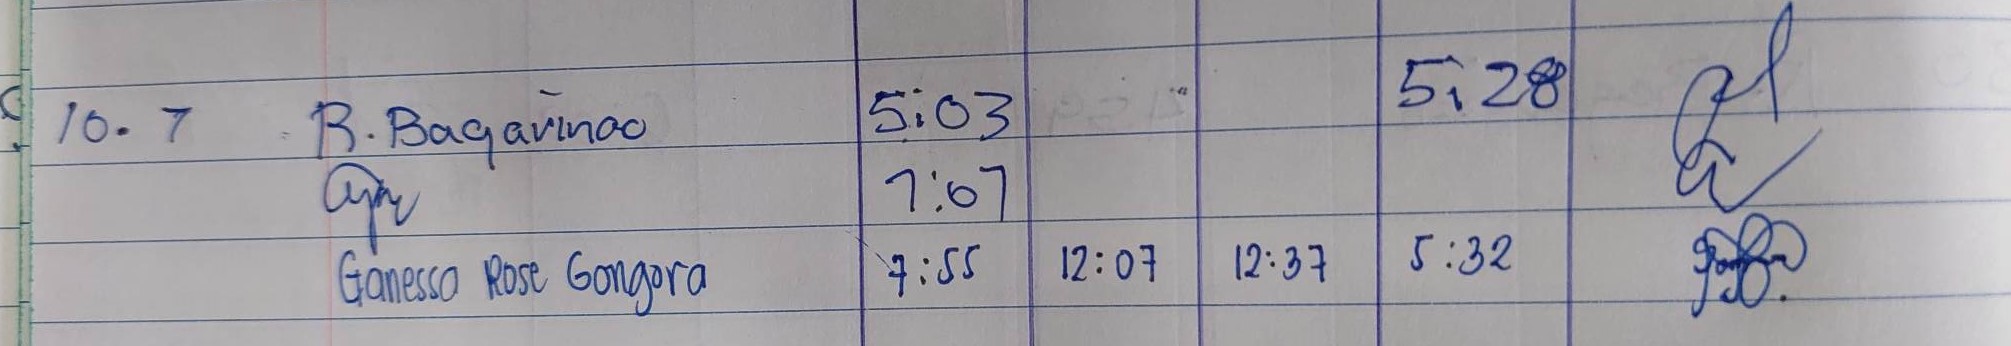 10.7 R. Bagavinao 5:03 5:28
7:07
Ganessa Rose Gongora 7:55 12:07 12:37 5:32